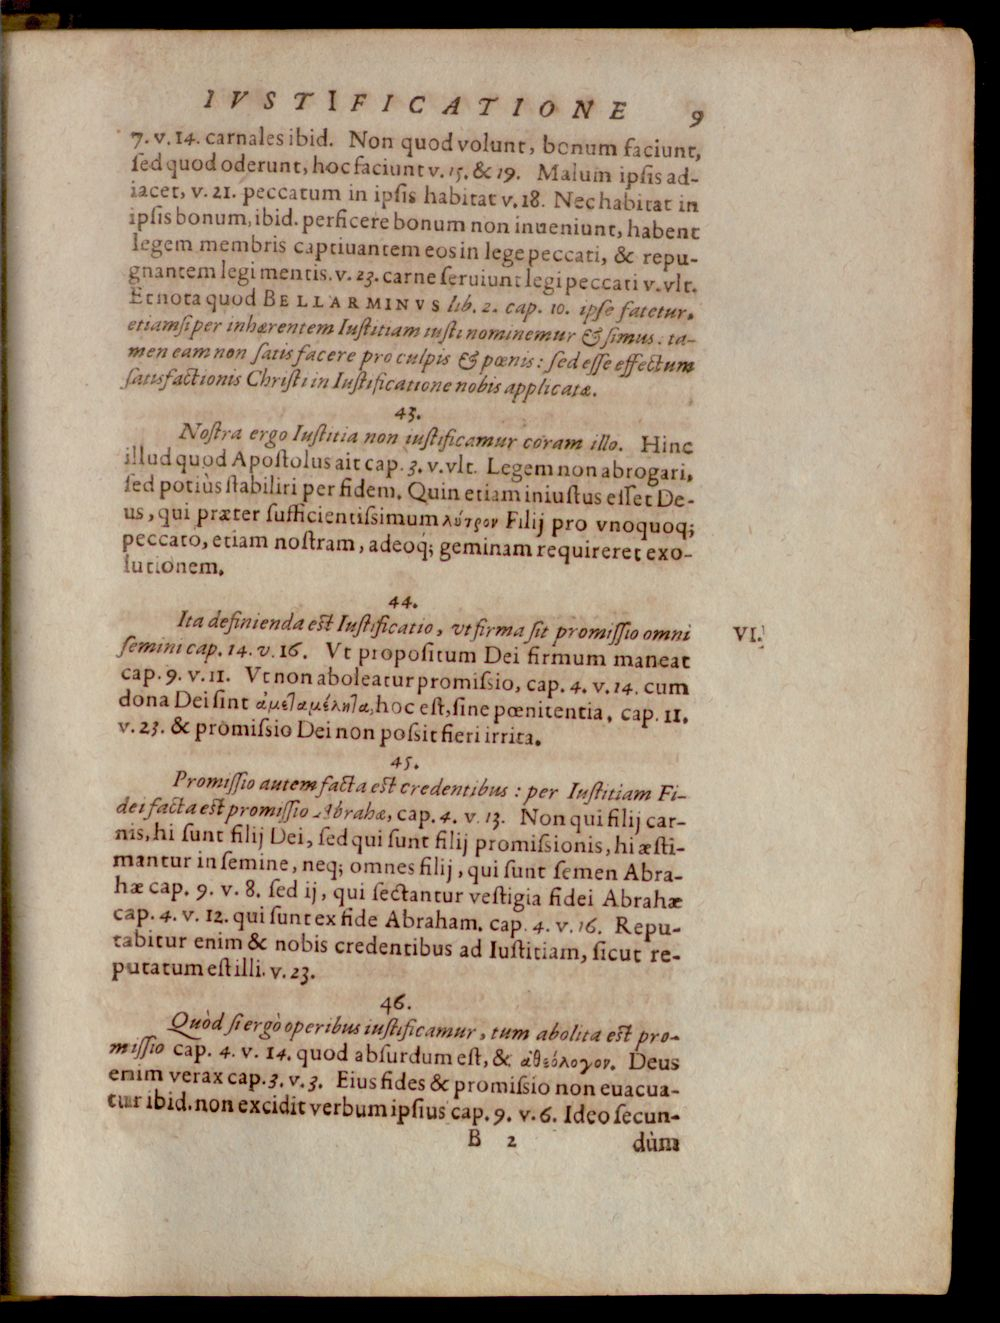 IVSTIFICATIONE 9
7. v. 14. carnales ibid. Non quod volunt, bonum faciunt,
ſed quod oderunt, hoc faciunt v. 15. & 19. Malum ipſis ad-
iacet, v. 21. peccatum in ipſis habitat v. 18. Nec habitat in
ipſis bonum, ibid. perficere bonum non inueniunt, habent
legem membris captiuantem eos in lege peccati, & repu-
gnantem legi mentis. v. 23. carne ſeruiunt legi peccati v. vlt.
Et nota quod BELLARMINVS lib. 2. cap. 10. ipſe fatetur,
etiamſi per inhærentem Iuſtitiam iuſti nominemur & ſimus, ta-
men eam non ſatis facere pro culpis & pœnis: ſed eſſe effectum
ſatisfactionis Chriſti in Iuſtificatione nobis applicatæ.
43.
Noſtra ergo Iuſtitia non iuſtificamur coram illo. Hinc
illud quod Apoſtolus ait cap. 3. v. vlt. Legem non abrogari,
ſed potiùs ſtabiliri per fidem. Quin etiam iniuſtus eſſet De-
us, qui præter ſufficientiſsimum λύτρον Filij pro vnoquoq;
peccato, etiam noſtram, adeoq́; geminam requireret exo-
lutionem.
44.
Ita definienda eſt Iuſtificatio, vt firma ſit promiſſio omni
VI.
ſemini cap. 14. v. 16. Vt propoſitum Dei firmum maneat
cap. 9. v. 11. Vt non aboleatur promiſsio, cap. 4. v. 14. cum
dona Dei ſint ἀμεταμέλητα, hoc eſt, ſine pœnitentia, cap. 11.
v. 23. & promiſsio Dei non poſsit fieri irrita.
45.
Promiſſio autem facta eſt credentibus: per Iuſtitiam Fi-
dei facta eſt promiſſio Abrahæ, cap. 4. v. 13. Non qui filij car-
nis, hi ſunt filij Dei, ſed qui ſunt filij promiſsionis, hi æſti-
mantur in ſemine, neq; omnes filij, qui ſunt ſemen Abra-
hæ cap. 9. v. 8. ſed ij, qui ſectantur veſtigia fidei Abrahæ
cap. 4. v. 12. qui ſunt ex fide Abraham. cap. 4. v. 16. Repu-
tabitur enim & nobis credentibus ad Iuſtitiam, ſicut re-
putatum eſt illi. v. 23.
46.
Quòd ſi ergò operibus iuſtificamur, tum abolita eſt pro-
miſſio cap. 4. v. 14. quod abſurdum eſt, & ἀθεόλογον. Deus
enim verax cap. 3. v. 3. Eius fides & promiſsio non euacua-
tur ibid. non excidit verbum ipſius cap. 9. v. 6. Ideo ſecun-
B 2 dùm